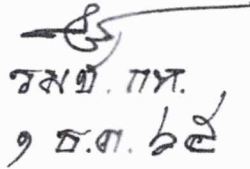 รมช. กห.
๑ ธ.ค. ๖๕